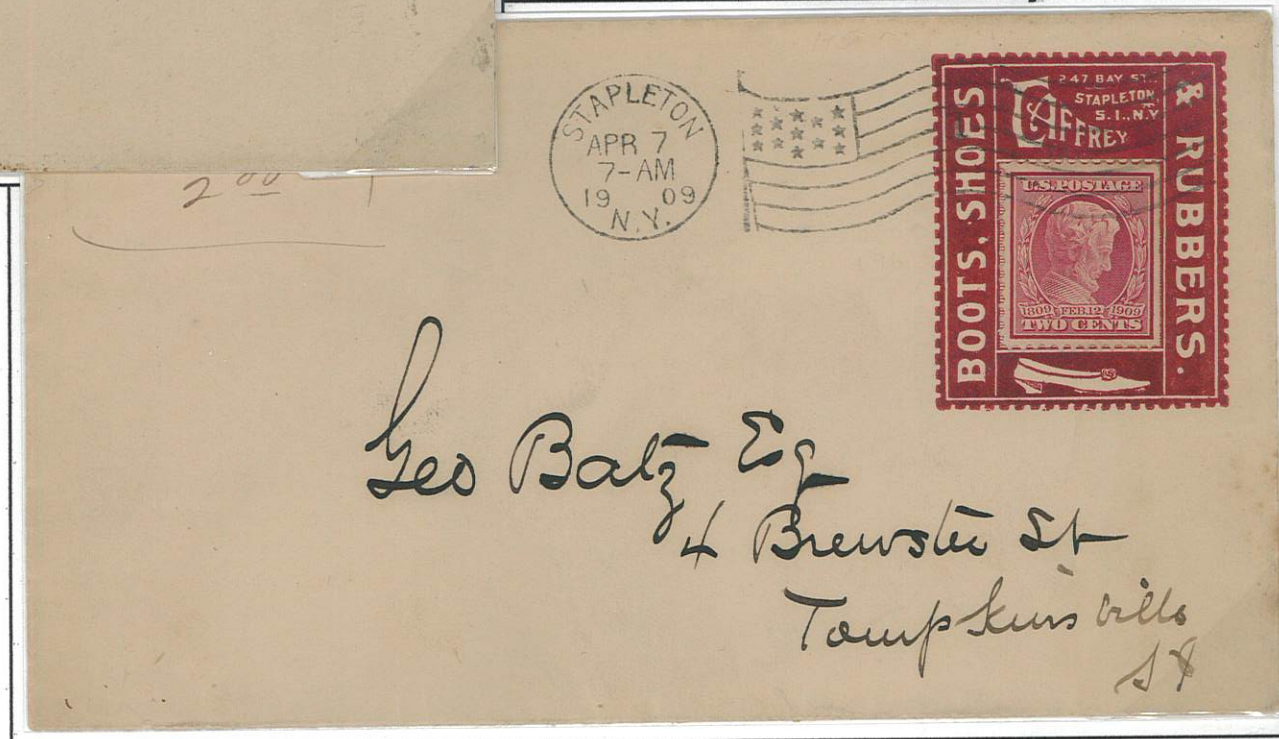 2 00
STAPLETON
APR 7
7-AM
19 09
N.Y.
BOOTS, SHOES
& RUBBERS.
247 BAY ST.
STAPLETON,
S.I., N.Y
CAFFREY
U.S. POSTAGE
1809 FEB. 12 1909
TWO CENTS
Geo Batz Esq
4 Brewster St
Tompkinsville
SI